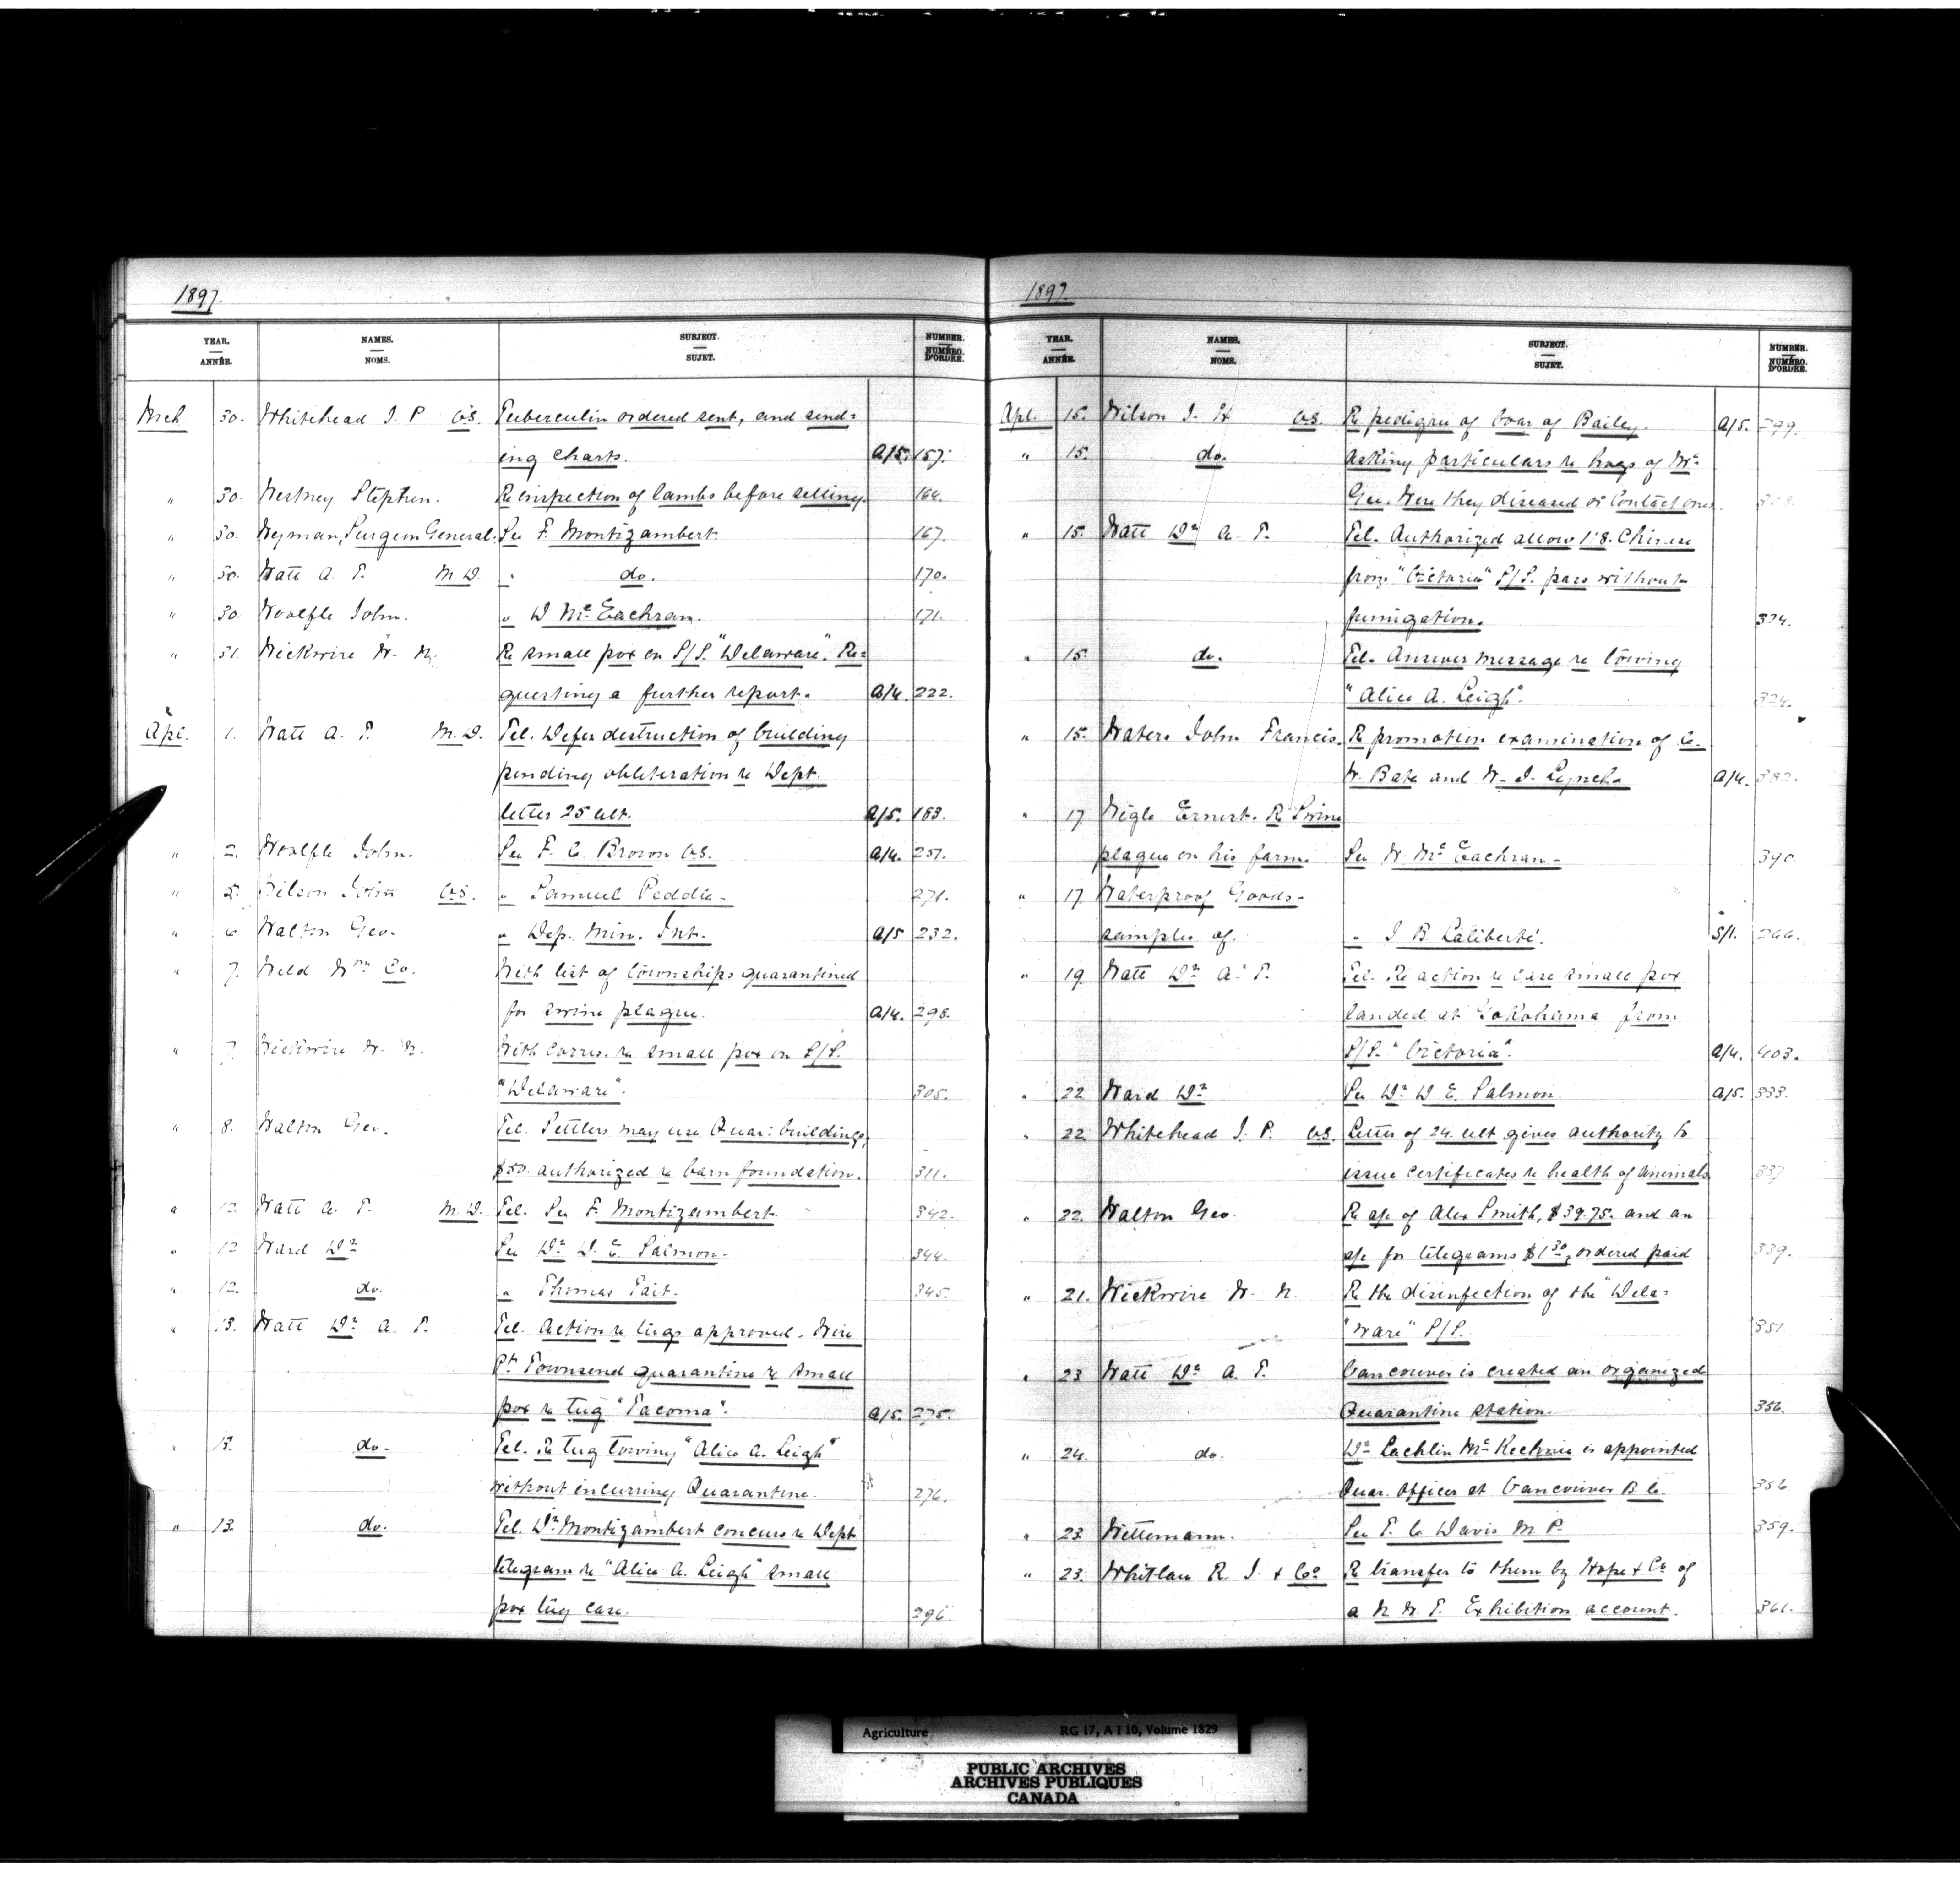 1897.
YEAR. ANNÉE. NAMES. NOMS. SUBJECT. SUJET. NUMBER. NUMÉRO. D'ORDRE.
Mch 30. Whitehead J. P. V.S. Tuberculin ordered sent, and send=
ing charts. A/5. 157.
" 30. Westney Stephen. Re inspection of lambs before selling. 164.
" 30. Wyman, Surgeon General. See F. Montizambert. 167.
" 30. Watt A. T. M.D. " do. 170.
" 30. Woolfle John. " D McEachran. 171.
" 31 Wickwire W. N. Re small pox on S/S. "Delaware". Re=
questing a further report. A/4. 222.
Apl. 1. Watt A. T. M.D. Tel. Defer destruction of building
pending obliteration re Dept.
letter 25 ult. A/5. 183.
" 2. Woolfle John. See F. C. Brown V.S. A/4. 251.
" 5. Wilson John V.S. " Samuel Peddie. 271.
" 6. Walton Geo. " Dep. Min. Int. A/5 232.
" 7. Weld Wm Co. With list of townships quarantined
for swine plague. A/4. 298.
" 7. Wickwire W. N. With corres. re small pox on S/S.
"Delaware". 305.
" 8. Walton Geo. Tel. Settlers may use Quar: buildings,
$50. authorized re barn foundation. 311.
" 12 Watt A. T. M.D. Tel. See F. Montizambert. 342.
" 12 Ward Dr See Dr D. E. Salmon. 344.
" 12. do. " Thomas Tait. 345.
" 13. Watt Dr A. T. Tel. Action re tugs approved. Wire
Pt Townsend quarantine re small
pox re tug "Tacoma". A/5. 275.
" 13. do. Tel. Re tug towing "Alice A. Leigh"
without incurring Quarantine. 276.
" 13. do. Tel. Dr Montizambert concurs re Dept
telegram re "Alice A. Leigh" small
pox tug case. 296.
1897.
YEAR. ANNÉE. NAMES. NOMS. SUBJECT. SUJET. NUMBER. NUMÉRO. D'ORDRE.
Apl. 15. Wilson J. H V.S. Re pedigree of boar of Bailey. A/5. 299.
" 15. do. Asking particulars re hogs of Mr
Gee. Were they diseased or contact ones.
" 15. Watt Dr A. T. Tel. Authorized allow 1'8. Chinese
from "Victoria" S/S. pass without
fumigation. 324.
" 15. do. Tel. Answer message re towing
"Alice A. Leigh". 324.
" 15. Waters John Francis. Re promotion examination of C.
W. Bate and W. J. Lynch. A/4. 382.
" 17. Wigle Ernest. Re Swine
plague on his farm. See W. McEachran. 390.
" 17 Waterproof Goods.
samples of. " J B. Laliberté. S/1. 266.
" 19. Watt Dr A. T. Tel. Re action re case small pox
landed at Yokohama from
S/S. "Victoria". A/4. 403.
" 22 Ward Dr See Dr D E. Salmon. A/5. 333.
" 22. Whitehead J. P. V.S. Letter of 24. ult gives authority to
issue certificates re health of animals. 337
" 22. Walton Geo. Re a/c of Alex Smith, $39.75. and an
a/c for telegrams $1 30, ordered paid 339.
" 21. Wickwire W. N. Re the disinfection of the "Dela=
"ware" S/S. 351.
" 23 Watt Dr A. T. Vancouver is created an organized
Quarantine station. 356.
" 24. do. Dr Lachlin is appointed
Quar. Officer at Vancouver B C. 356.
" 23 Wettemann. See T. C Davis M. P. 359.
" 23. Whitlau R. J. & Co Re transfer to them by Hope & Co of
a N W T. Exhibition account. 361.
Agriculture RG 17, A I 10, Volume 1829
PUBLIC ARCHIVES
ARCHIVES PUBLIQUES
CANADA